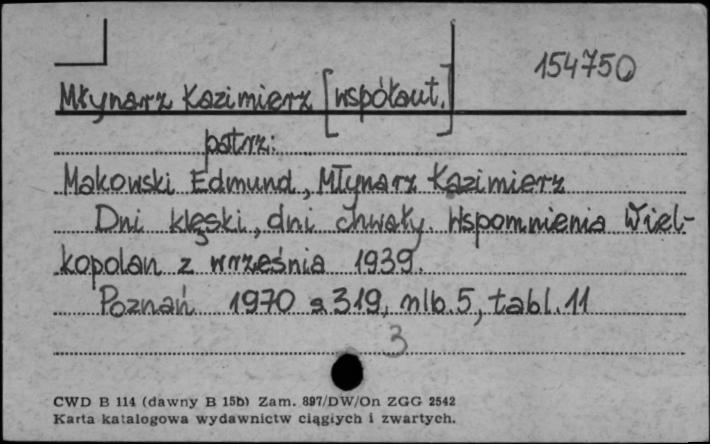 154750
Młynarz Kazimierz [współaut.]
patrz:
Makowski Edmund, Młynarz Kazimierz
Dni klęski, dni chwały. Wspomnienia Wiel-
kopolan z września 1939.
Poznań 1970 s 319, nlb. 5, tabl. 11
3
CWD B 114 (dawny B 15b) Zam. 897/DW/On ZGG 2542
Karta katalogowa wydawnictw ciągłych i zwartych.